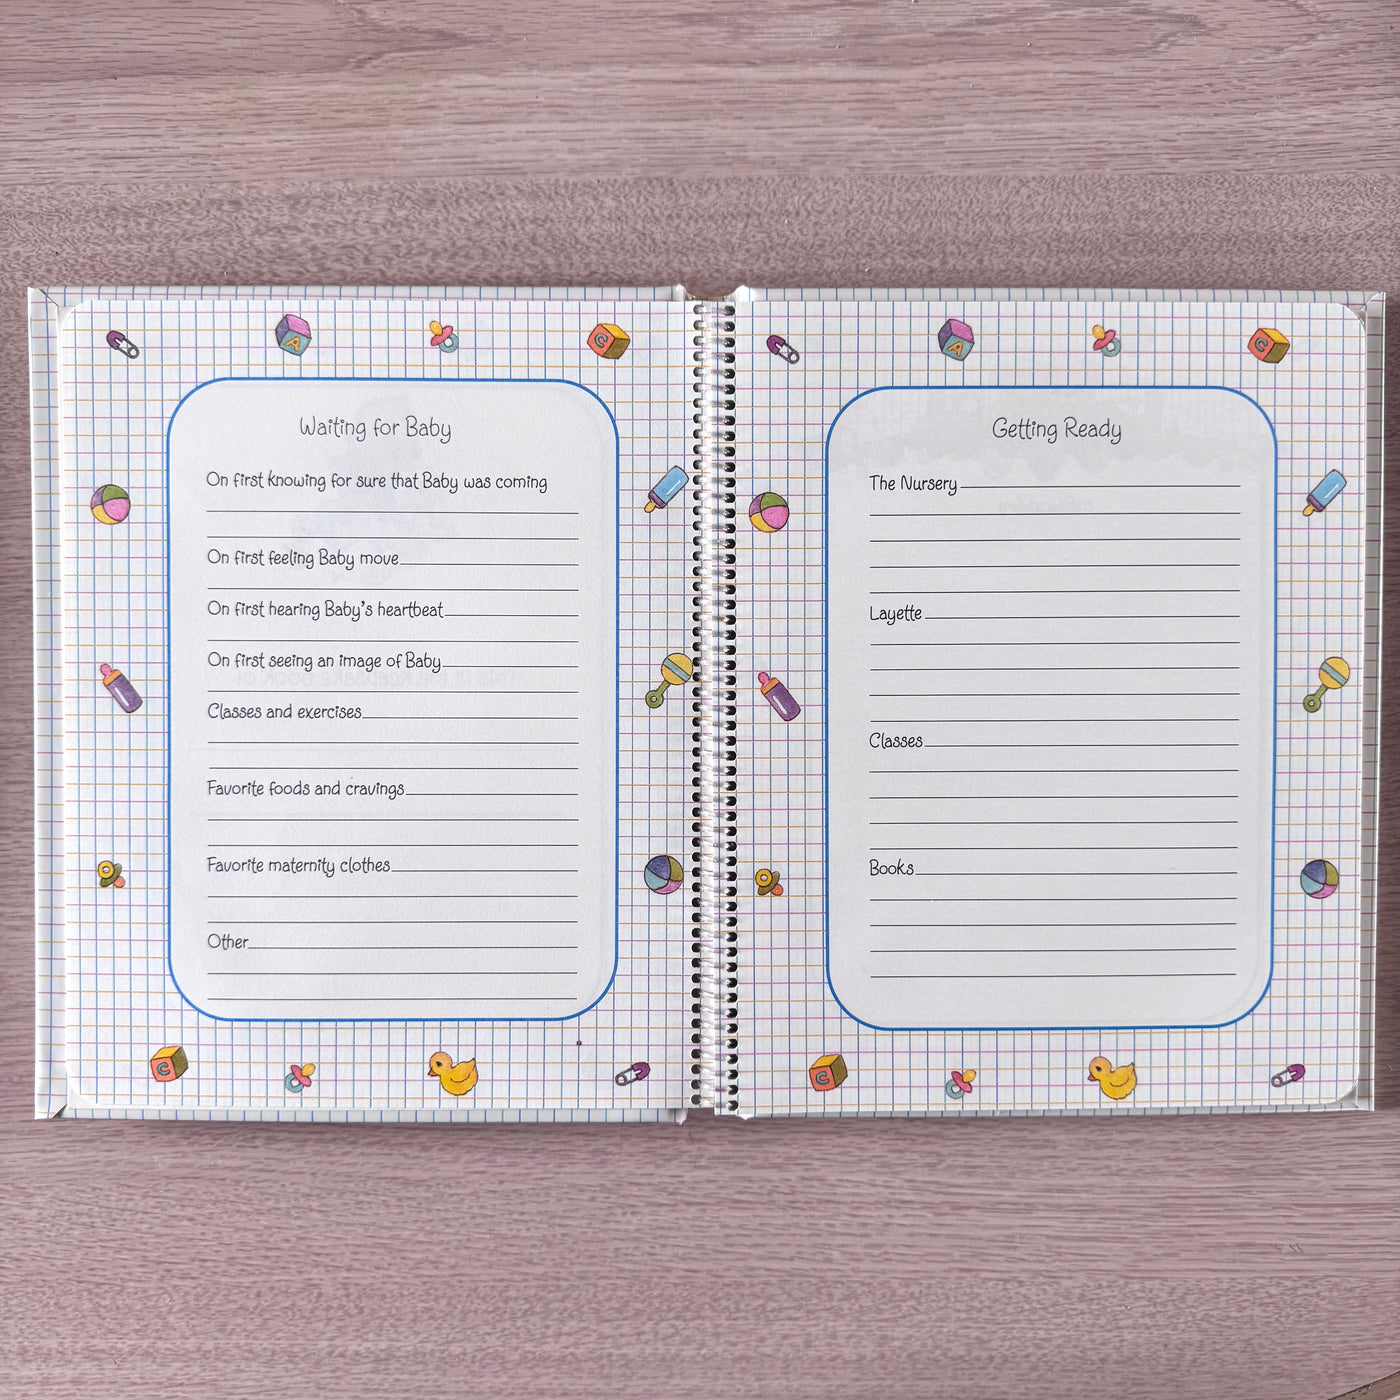 Waiting for Baby
On first knowing for sure that Baby was coming
On first feeling Baby move
On first hearing Baby's heartbeat
On first seeing an image of Baby
Classes and exercises
Favorite foods and cravings
Favorite maternity clothes
Other
Getting Ready
The Nursery
Layette
Classes
Books
A
C
A
C
C
C